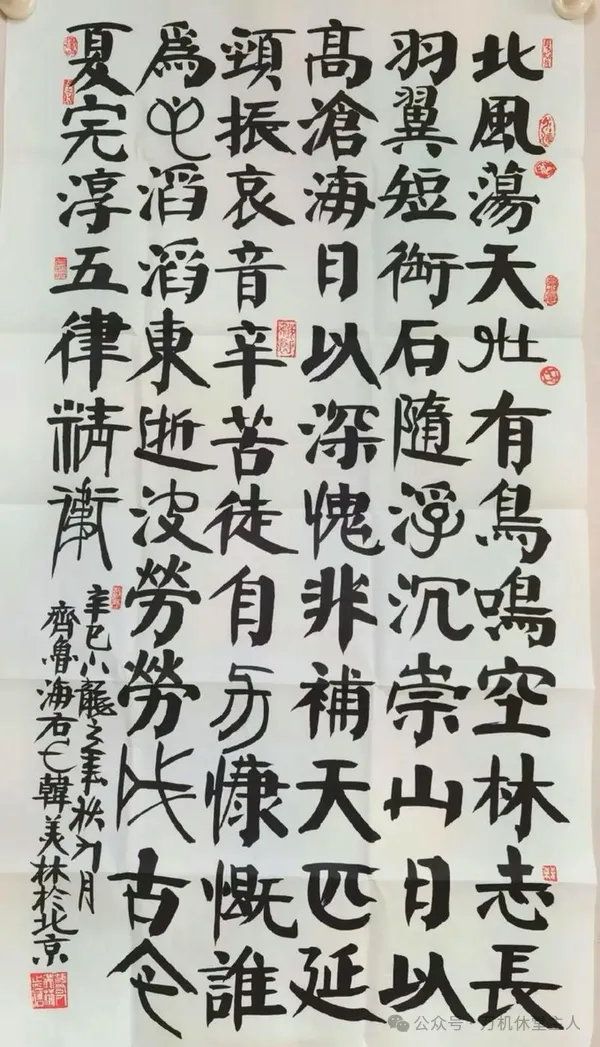 北風蕩天地有鳥鳴空林志長
羽翼短銜石隨浮沉崇山日以
高滄海日以深愧非補天匹延
頸振哀音辛苦徒自力慷慨誰
爲心滔滔東逝波勞勞成古今
夏完淳五律精衛
辛巳小龍之年秋九月
齊魯海右韓美林於北京
公众号